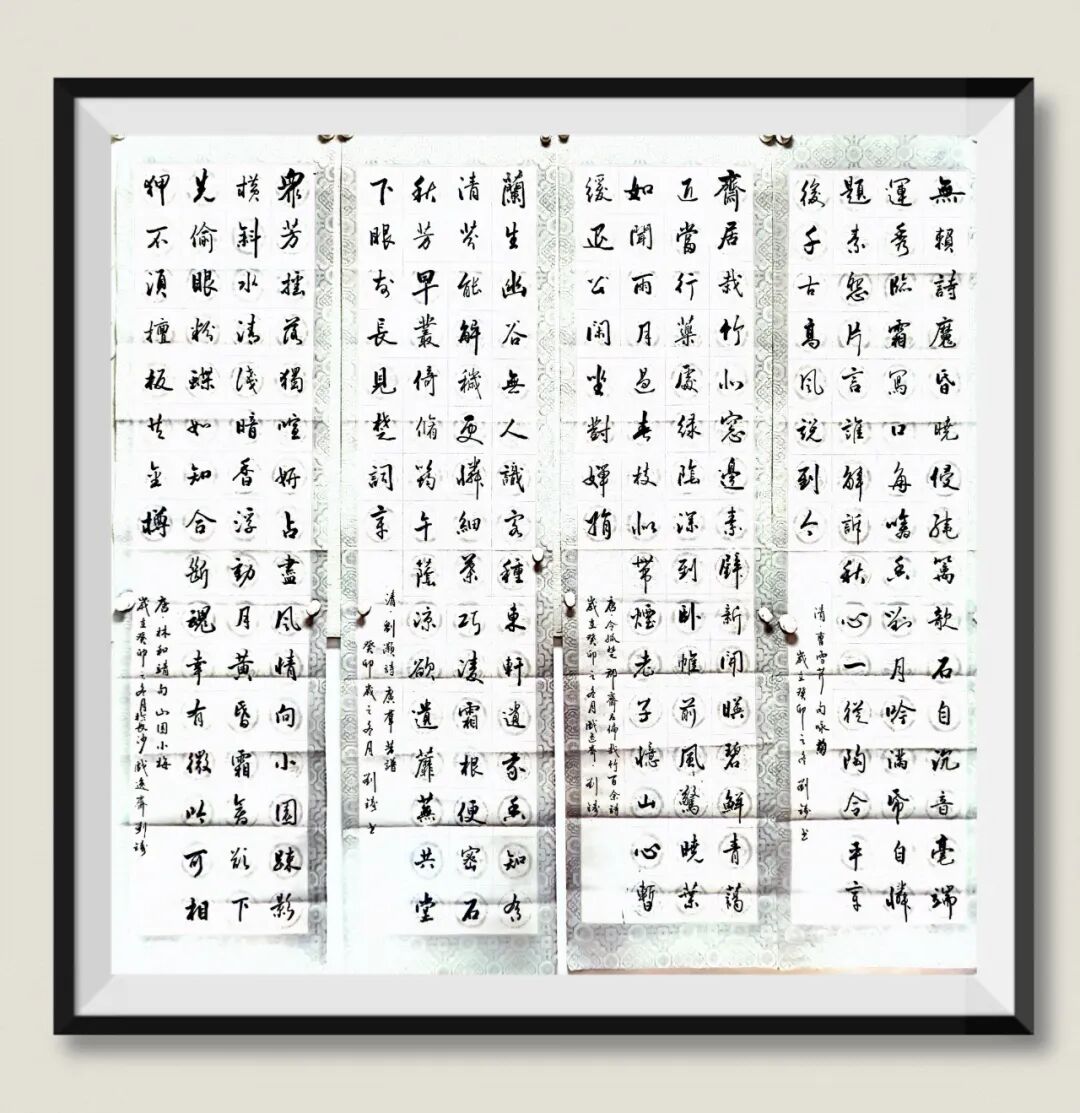 無賴詩魔昏曉侵繞篱欹石自沉音毫端
運秀臨霜寫口每噙香對月吟滿紙自憐
題素怨片言誰解訴秋心一從陶令平章
後千古高風說到今
清曹雪芹句咏菊
歲在癸卯之冬劉書
齋居栽竹北窓邊素壁新開暎碧鮮青藹
近當行藥處綠陰深到卧帷前風驚曉葉
如聞雨月過春枝似帶煙老子憶山心暫
緩退公閑坐對嬋娟
唐令狐楚郡齋左偏栽竹百余詩
歲在癸卯之冬月戲逸齋劉
蘭生幽谷無人識客種東軒遺我香知有
清芬能解穢更憐細葉巧凌霜根便密石
秋芳早叢倚脩筠午蔭凉欲遺蘼蕪共堂
下眼前長見楚詞章
清劉灝詩廣群芳譜
癸卯歲之冬月劉書
衆芳摇落獨喧妍占盡風情向小園疎影
橫斜水清淺暗香浮動月黃昏霜禽欲下
先偷眼粉蝶如知合斷魂幸有微吟可相
狎不須檀板共金樽
唐林和靖句山園小梅
歲在癸卯之冬月於長沙戲逸齋劉